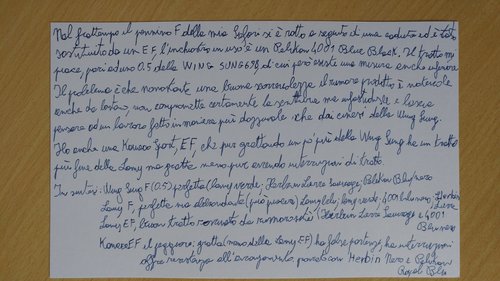 Nel frattempo il pennino F della mia Safari si è rotto a seguito di una caduta ed è stato
sostituito da un EF, l'inchiostro in uso è un Pelikan 4001 Blue Black. Il tratto mi
piace, pari ad uno 0.5 della WING SUNG 698, di cui però esiste una misura anche inferiore
Il problema è che nonostante una buona scorrevolezza il rumore prodotto è notevole
anche da lontano, non compromette certamente la scrittura ma infastidisce e lascia
pensare ad un lavoro fatto in maniera più dozzinale che dai cinesi della Wing Sung.
Ho anche una Kaweco Sport, EF, che pur grattando un po' più della Wing Sung ha un tratto
più fine della Lamy ma gratta meno pur avendo interruzioni di tratto.
In sintesi: Wing Sung F (0.5) perfetta (Lamy verde, Herbin Lierre Sauvage, Pelikan Blu/nero
Lamy F, perfetta ma abbondante (più pastosa) Lamy blu, lamy verde, 4001 blu nero, Herbin Lierre
Lamy EF, buon tratto rovinato da rumorosità (Herbin Lierre Sauvage e 4001
Blu nero
Kaweco EF il peggiore: gratta (meno della Lamy EF) ha false partenze, ha interruzioni
offre resistenza all'avanzamento, provata con Herbin Nero e Pelikan
Royal Blu